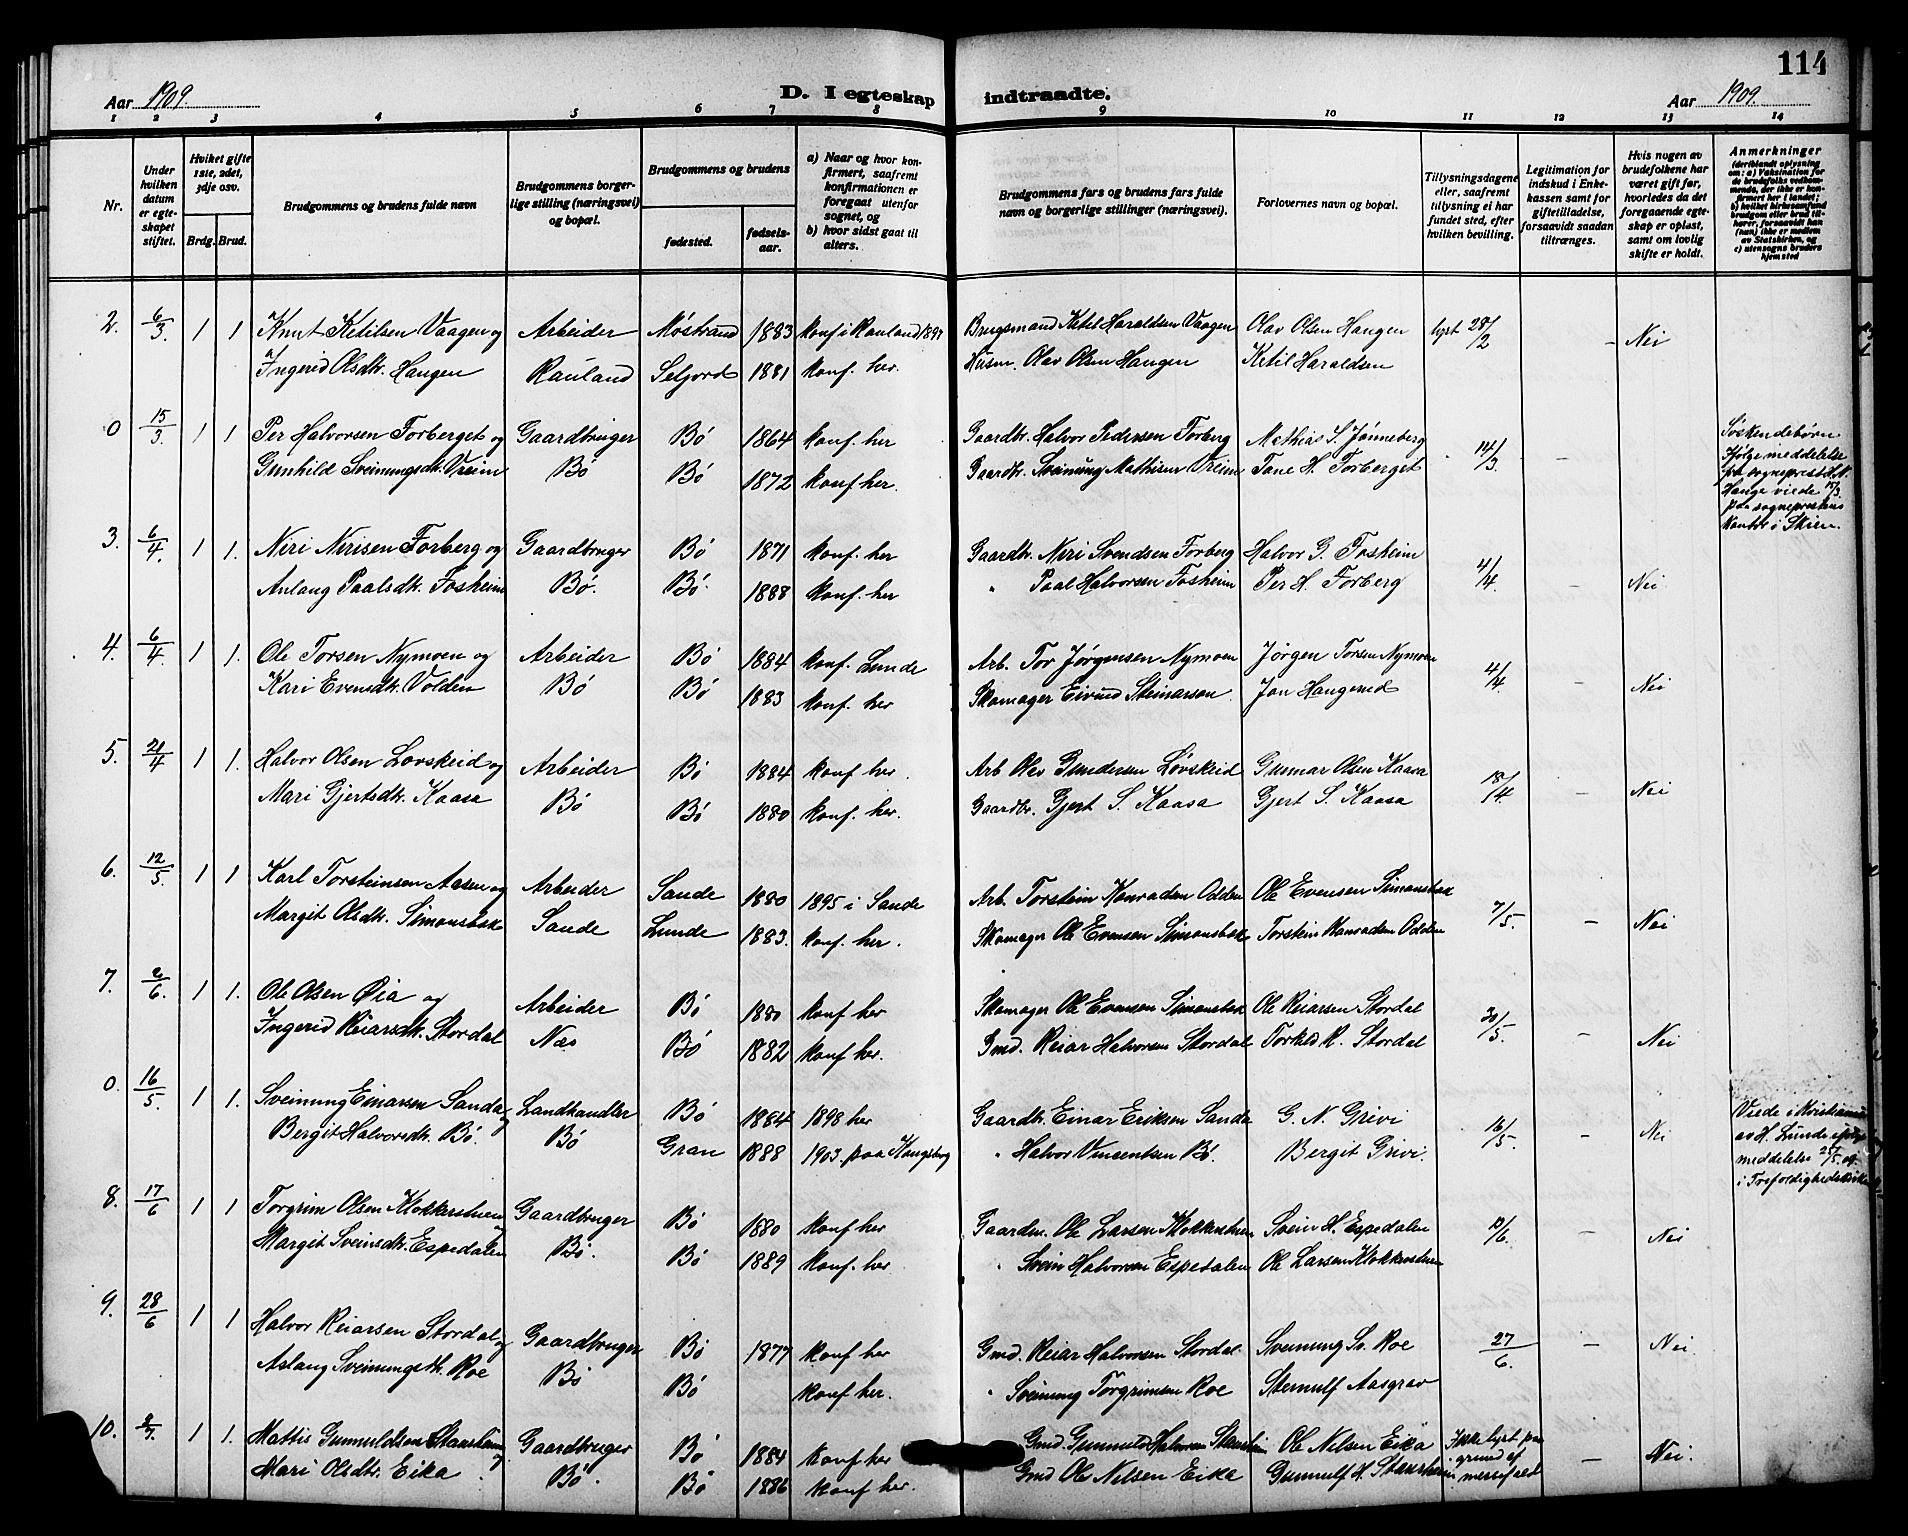 114
Aar 1909. D. I egteskap indtraadte. Aar 1909.
1 2 3 4 5 6 7 8 9 10 11 12 13 14
Nr.
Under hvilken datum er egteskapet stiftet.
Hvilket gifte 1ste, 2det, 3dje osv.
Brdg. Brud.
Brudgommens og brudens fulde navn
Brudgommens borgerlige stilling (næringsvei) og bopæl.
Brudgommens og brudens
fødested. fødselsaar.
a) Naar og hvor konfirmert, saafremt konfirmationen er foregaat utenfor sognet, og
b) hvor sidst gaat til alters.
Brudgommens fars og brudens fars fulde navn og borgerlige stillinger (næringsvei).
Forlovernes navn og bopæl.
Tillysningsdagene eller, saafremt tillysning ei har fundet sted, efter hvilken bevilling.
Legitimation for indskud i Enkekassen samt for giftetilladelse, forsaavidt saadan tiltrænges.
Hvis nogen av brudefolkene har været gift før, hvorledes da det foregaaende egteskap er opløst, samt om lovlig skifte er holdt.
Anmerkninger (deriblandt oplysning om: a) Vaksination for de brudefolks vedkommende, der ikke er konfirmert her i landet; b) hvilket kirkesamfund brudgom eller brud tilhører, forsaavidt han (hun) ikke er medlem av Statskirken, og c) utensogns bruders hjemsted
2. 6/3. 1 1 Knut Ketilsen Vaagen og Arbeider Møstrand 1883 konf i Rauland 1897 Brugsmand Ketil Haraldsen Vaagen Olav Olsen Haugen lyst 28/2 – Nei
Ingerid Olsdtr. Haugen Rauland Seljord 1881 konf. her. Husm. Olav Olsen Haugen Ketil Haraldsen
0 15/3. 1 1 Per Halvorsen Forberget og Gaardbruger Bø 1864 konf. her Gaardbr. Halvor Pedersen Forberg Mathias S. Jønneberg 14/3. Søskendebørn
Gunhild Sveinungsdtr. Vreim Bø Bø 1872 konf her. Gaardbr. Sveinung Mathisen Vreim Tone H. Forberget Ifølge meddelelse
fra sogneprest H. N.
Hauge viede 15/3.
paa sogneprestens
kontor i Skien.
3. 6/4. 1 1. Neri Nerisen Forberg og Gaardbruger Bø 1871 konf. her Gaardbr. Neri Svendsen Forberg Halvor G. Fosheim 4/4. – Nei
Anlaug Paalsdtr. Fosheim Bø. Bø. 1888 konf. her " Paal Halvorsen Fosheim Per H. Forberg
4. 6/4. 1 1. Ole Torsen Nymoen og Arbeider Bø 1884 konf. Lunde Arb. Tor Jørgensen Nymoen Jørgen Torsen Nymoen 4/4. – Nei
Kari Evensdtr. Volden Bø Bø 1883 konf. her Skomager Eivind Steinarson. Jon Haugerud
5. 21/4 1 1. Halvor Olsen Lovskeid og Arbeider Bø 1884 konf her. Arb Olav Gundersen Løvskeid Gunnar Olsen Kaasa 18/4. – Nei
Mari Gjertsdtr. Kaasa Bø Bø 1880 konf. her. Gaardbr. Gjert S. Kaasa Gjert S. Kaasa
6. 12/5. 1 1 Karl Torsteinsen Aasen og Arbeider Sande 1880 1895 i Sande Arb. Torstein Konradsen Odden Ole Evensen Simonsbak 7/5. – Nei
Margit Olsdtr. Simonsbak Sande Lunde 1883. konf. her. Skomager Ole Evensen Simonsbak Torstein Konradsen Odden
7. 2/6. 1 1. Ole Olsen Øia og Arbeider Bø 1880 konf her Skomager Ole Evensen Simonsbak Ole Reiarsen Stordal 30/5. – Nei
Ingerid Reiarsdtr. Stordal Næs Bø 1882 konf her. Gmd. Reiar Halvorsen Stordal Torkild R. Stordal
0. 16/5. 1 1. Sveinung Einarsen Sanda og Landhandler Bø 1884 1898 her Gaardbr. Einar Eriksen Sanda G. N. Grivi 16/5. – Nei Viede i Kristiania
Bergit Halvorsdtr. Bø. Bø Gran 1888 1903. paa Kongsberg " Halvor Vincentsen Bø. Bergit Grivi. av H. Lunde ifølge
meddelelse 25/5. 09.
i Trefoldighedskirken
8. 17/6 1 1 Torgrim Olsen Klokkerstuen og Gaardbruger Bø 1880 konf her Gaardm. Ole Larsen Klokkerstuen Svein H. Espedalen 13/6. – Nei
Margit Sveinsdtr. Espedalen Bø. Bø 1889 konf. her " Svein Halvorsen Espedalen Ole Larsen Klokkerstuen
9. 28/6 1 1 Halvor Reiarsen Stordal og Gaardbruger Bø 1877 konf her Gmd. Reiar Halvorsen Stordal. Sveinung Sv. Roe 27/6. – Nei
Aslaug Sveinungsdtr. Roe Bø Bø konf her. " Sveinung Torgrimsen Roe Steinulf Aasgrav
10. 2/7. 1 1. Mattis Gunnuldsen Stansheim og Gaardbruger Bø 1884 konf her Gmd. Gunnulv Halvorsen Stansheim Ole Nilsen Eika Ikke lyst paa – Nei.
Mari Olsdtr. Eika Bø. Bø 1886 konf her. Gmd Ole Nilsen Eika Gunnulf H. Stansheim grund af
messefald